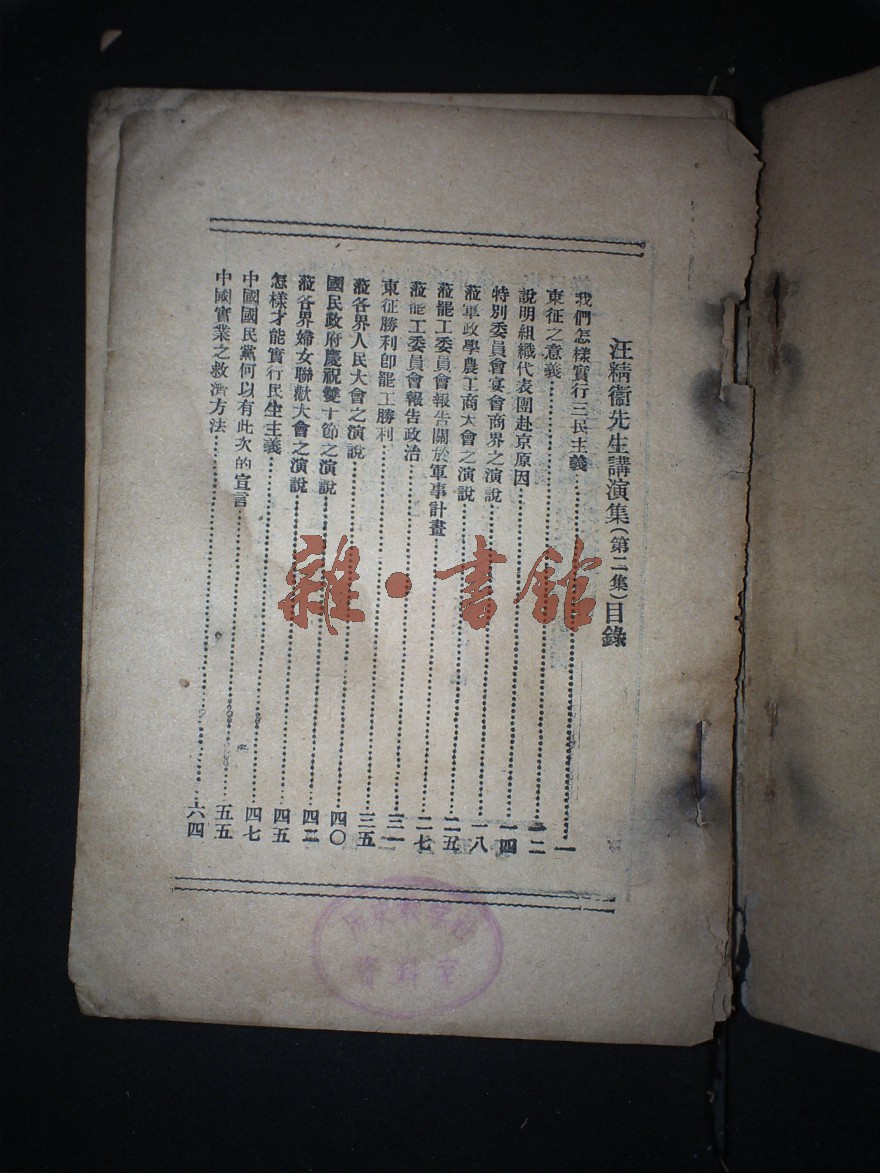 汪精衞先生講演集(第二集)目錄
我們怎樣實行三民主義……一
東征之意義……一二
說明組織代表團赴京原因……一四
特別委員會宴會商界之演說……一八
蒞軍政學農工商大會之演說……二五
蒞罷工委員會報告關於軍事計畫……二七
蒞罷工委員會報告政治……三一
東征勝利卽罷工勝利……三五
蒞各界人民大會之演說……四〇
國民政府慶祝雙十節之演說……四二
蒞各界婦女聯歡大會之演說……四五
怎樣才能實行民生主義……四七
中國國民黨何以有此次的宣言……五五
中國實業之救濟方法……六四
雜·書館
資料室